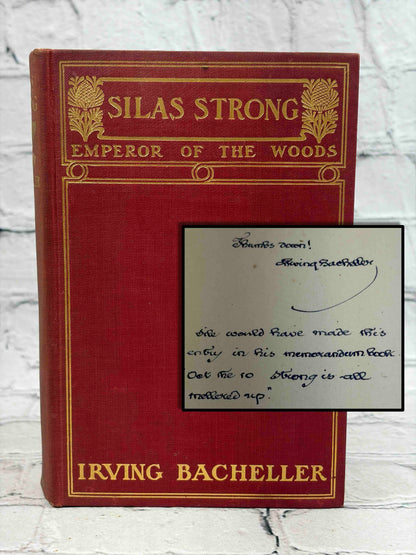 SILAS STRONG
EMPEROR OF THE WOODS
Thumbs down!
Irving Bacheller
would have made this
entry in his memorandum book
Oct the 10 Strong is all
mellered up".
IRVING BACHELLER